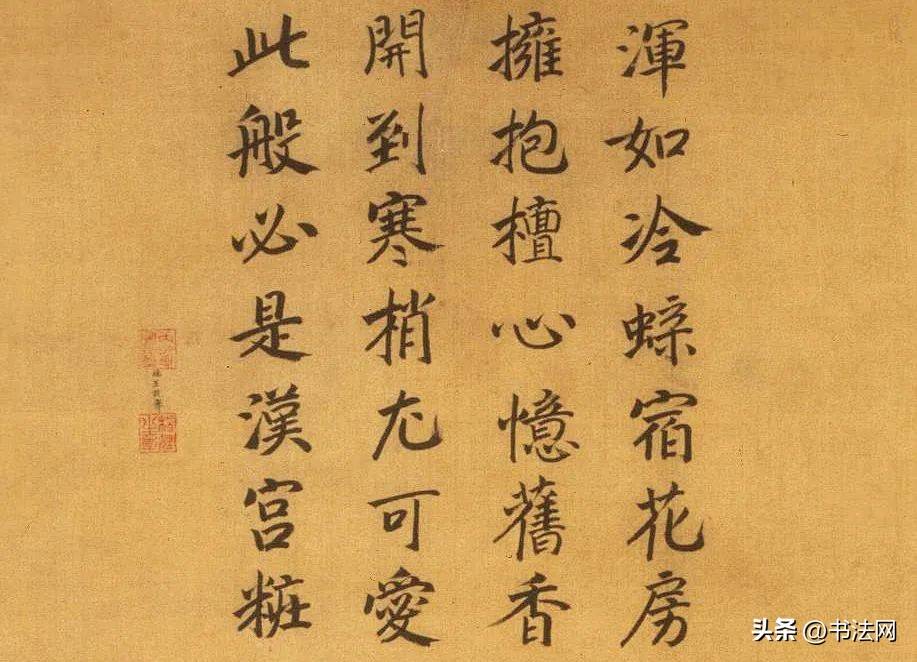 渾如冷蝶宿花房
擁抱檀心憶舊香
開到寒梢尤可愛
此般必是漢宮粧
头条 @书法网